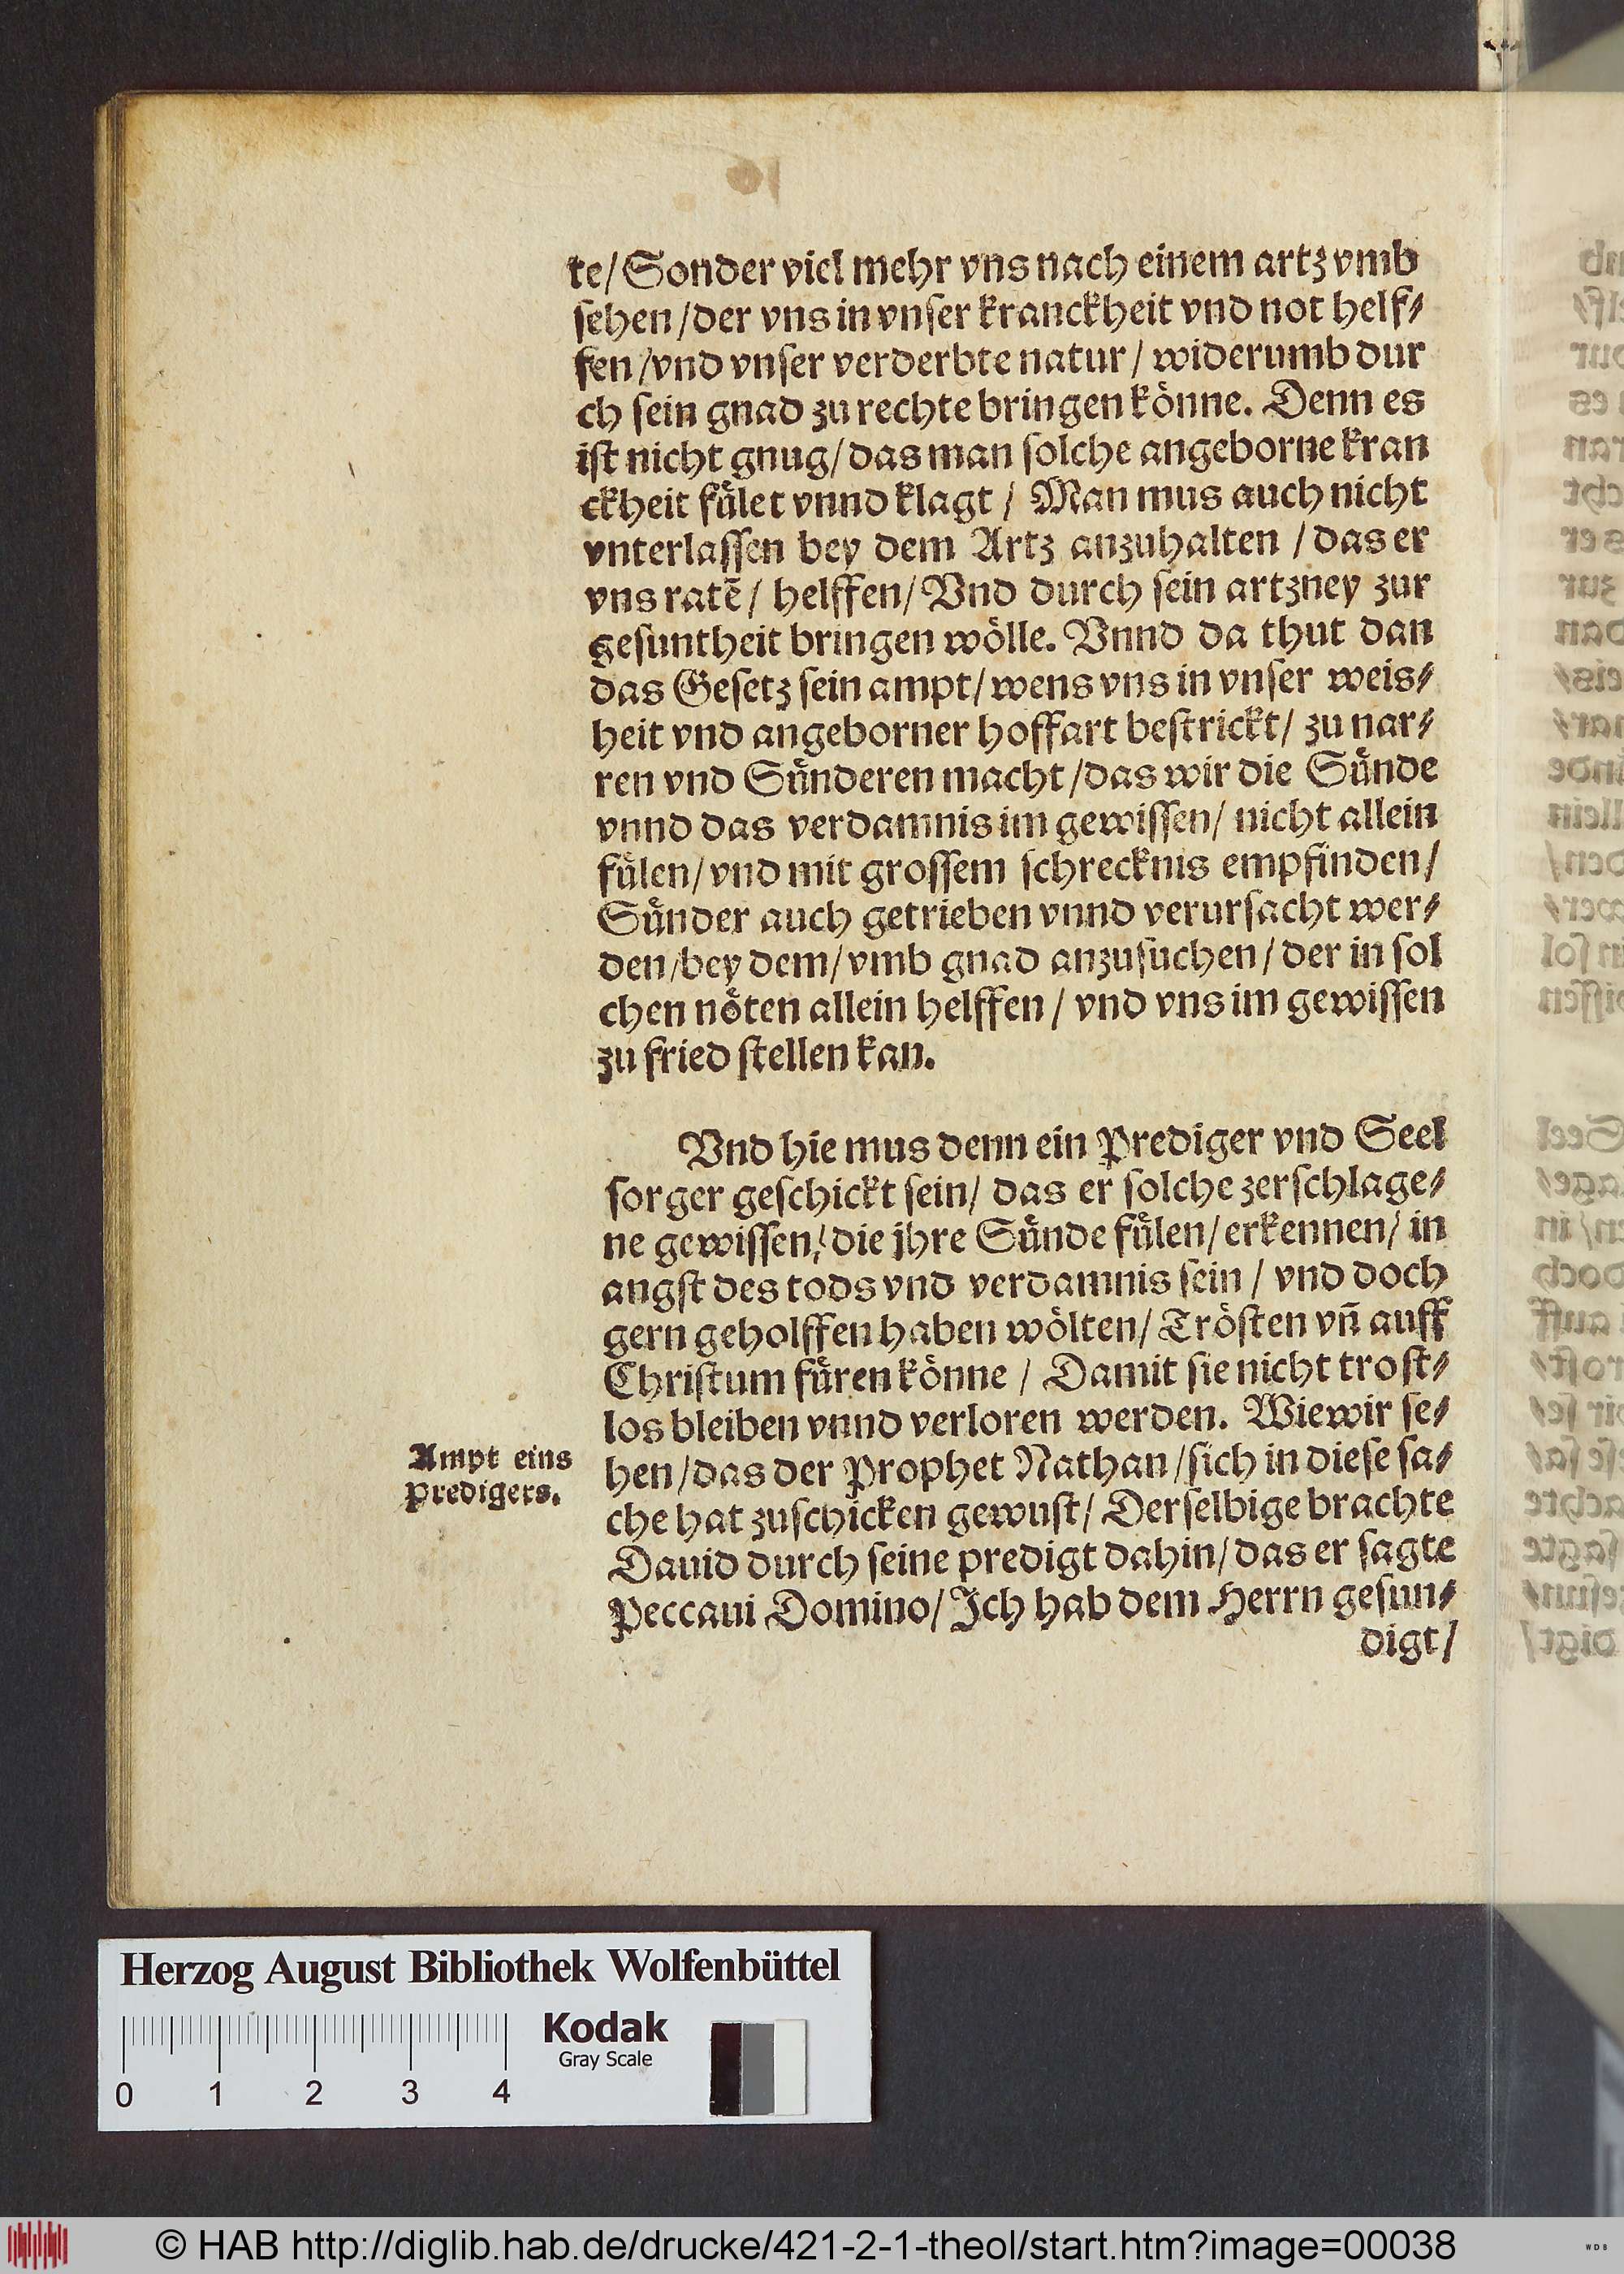 te/ Sonder viel mehr vns nach einem artz vmb
sehen/ der vns in vnser kranckheit vnd not helf⸗
fen/ vnd vnser verderbte natur/ widerumb dur
ch sein gnad zu rechte bringen könne. Denn es
ist nicht gnug/ das man solche angeborne kran
ckheit fület vnnd klagt/ Man mus auch nicht
vnterlassen bey dem Artz anzuhalten/ das er
vns ratẽ/ helffen/ Vnd durch sein artzney zur
gesuntheit bringen wölle. Vnnd da thut dan
das Gesetz sein ampt/ wens vns in vnser weis⸗
heit vnd angeborner hoffart bestrickt/ zu nar⸗
ren vnd Sünderen macht/ das wir die Sünde
vnnd das verdamnis im gewissen/ nicht allein
fülen/ vnd mit grossem schrecknis empfinden/
Sünder auch getrieben vnnd verursacht wer⸗
den/ bey dem/ vmb gnad anzusuchen/ der in sol
chen nöten allein helffen/ vnd vns im gewissen
zu fried stellen kan.
Vnd hie mus denn ein Prediger vnd Seel
sorger geschickt sein/ das er solche zerschlage⸗
ne gewissen/ die jhre Sünde fülen/ erkennen/ in
angst des tods vnd verdamnis sein/ vnd doch
gern geholffen haben wölten/ Trösten vñ auff
Christum füren könne/ Damit sie nicht trost⸗
los bleiben vnnd verloren werden. Wie wir se⸗
Ampt eins
Predigers.
hen/ das der Prophet Nathan/ sich in diese sa⸗
che hat zuschicken gewust/ Derselbige brachte
Dauid durch seine predigt dahin/ das er sagte
Peccaui Domino/ Ich hab dem Herrn gesun⸗
digt/
Herzog August Bibliothek Wolfenbüttel
Kodak
Gray Scale
0 1 2 3 4
© HAB http://diglib.hab.de/drucke/421-2-1-theol/start.htm?image=00038
WDB